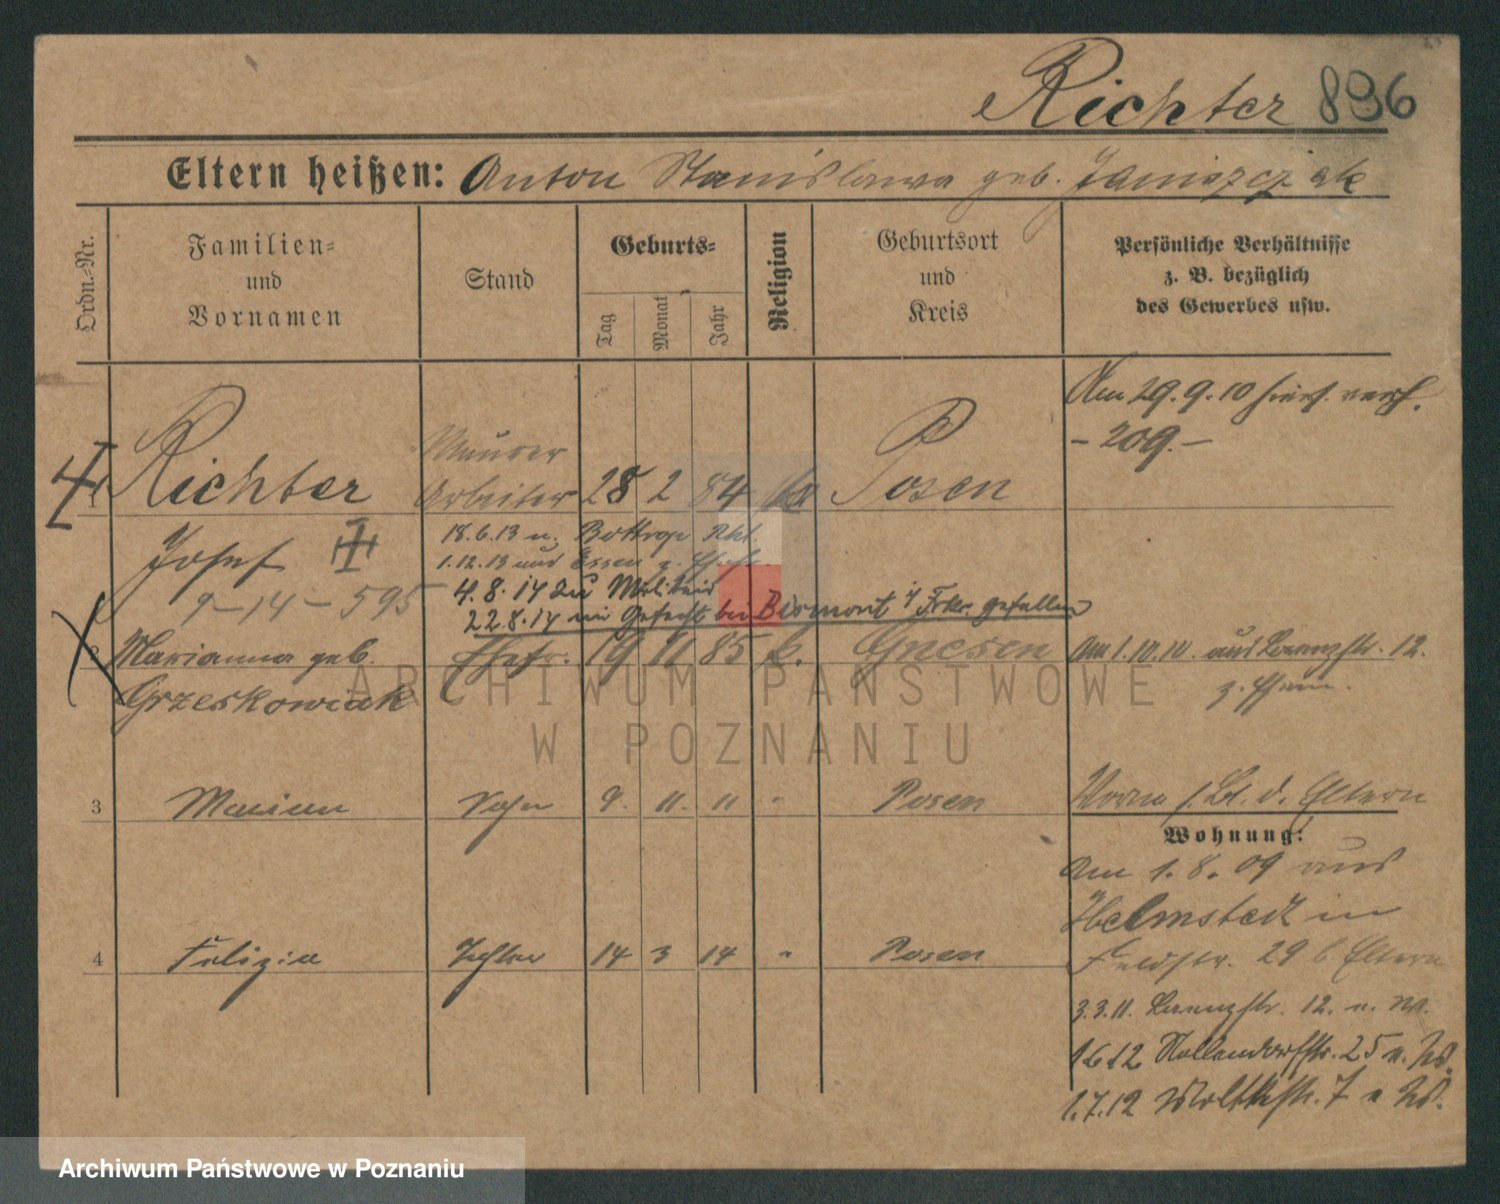 Richter 896
Eltern heißen: Anton Stanislawa geb. Janiszczak
Ordn.=Nr.
Familien=
und
Vornamen
Stand
Geburts=
Tag
Monat
Jahr
Religion
Geburtsort
und
Kreis
Persönliche Verhältnisse
z. B. bezüglich
des Gewerbes usw.
Am 29.9.10 hiers. verh.
- 209. -
Maurer
1 Richter Arbeiter 28 2 84 Posen
Josef III
18.6.13 n. Bottrop
1.12.13 aus Essen z.
9-14-595
4.8.14 zu Militär
22.8.14 im Gefecht bei Bismont i/ Frkr. gefallen
2 Marianna geb. Ehefr. 19 11 85 k. Gnesen Am 1.10.10. aus 12.
Grzeskowiak
z.
3 Marian Sohn 9. 11. 11 " Posen Worna d. Eltern
Wohnung:
Am 1.8.09 aus
Helmstedt in
Feldstr. 29 b Eltern
4 Felizia Tochter 14 3 14 " Posen
3.3.11. 12. n. W.
1612 Nollendorfstr. 25 n. W.
1.7.12 Moltkestr. 7 n W.
ARCHIWUM PAŃSTWOWE
W POZNANIU
Archiwum Państwowe w Poznaniu